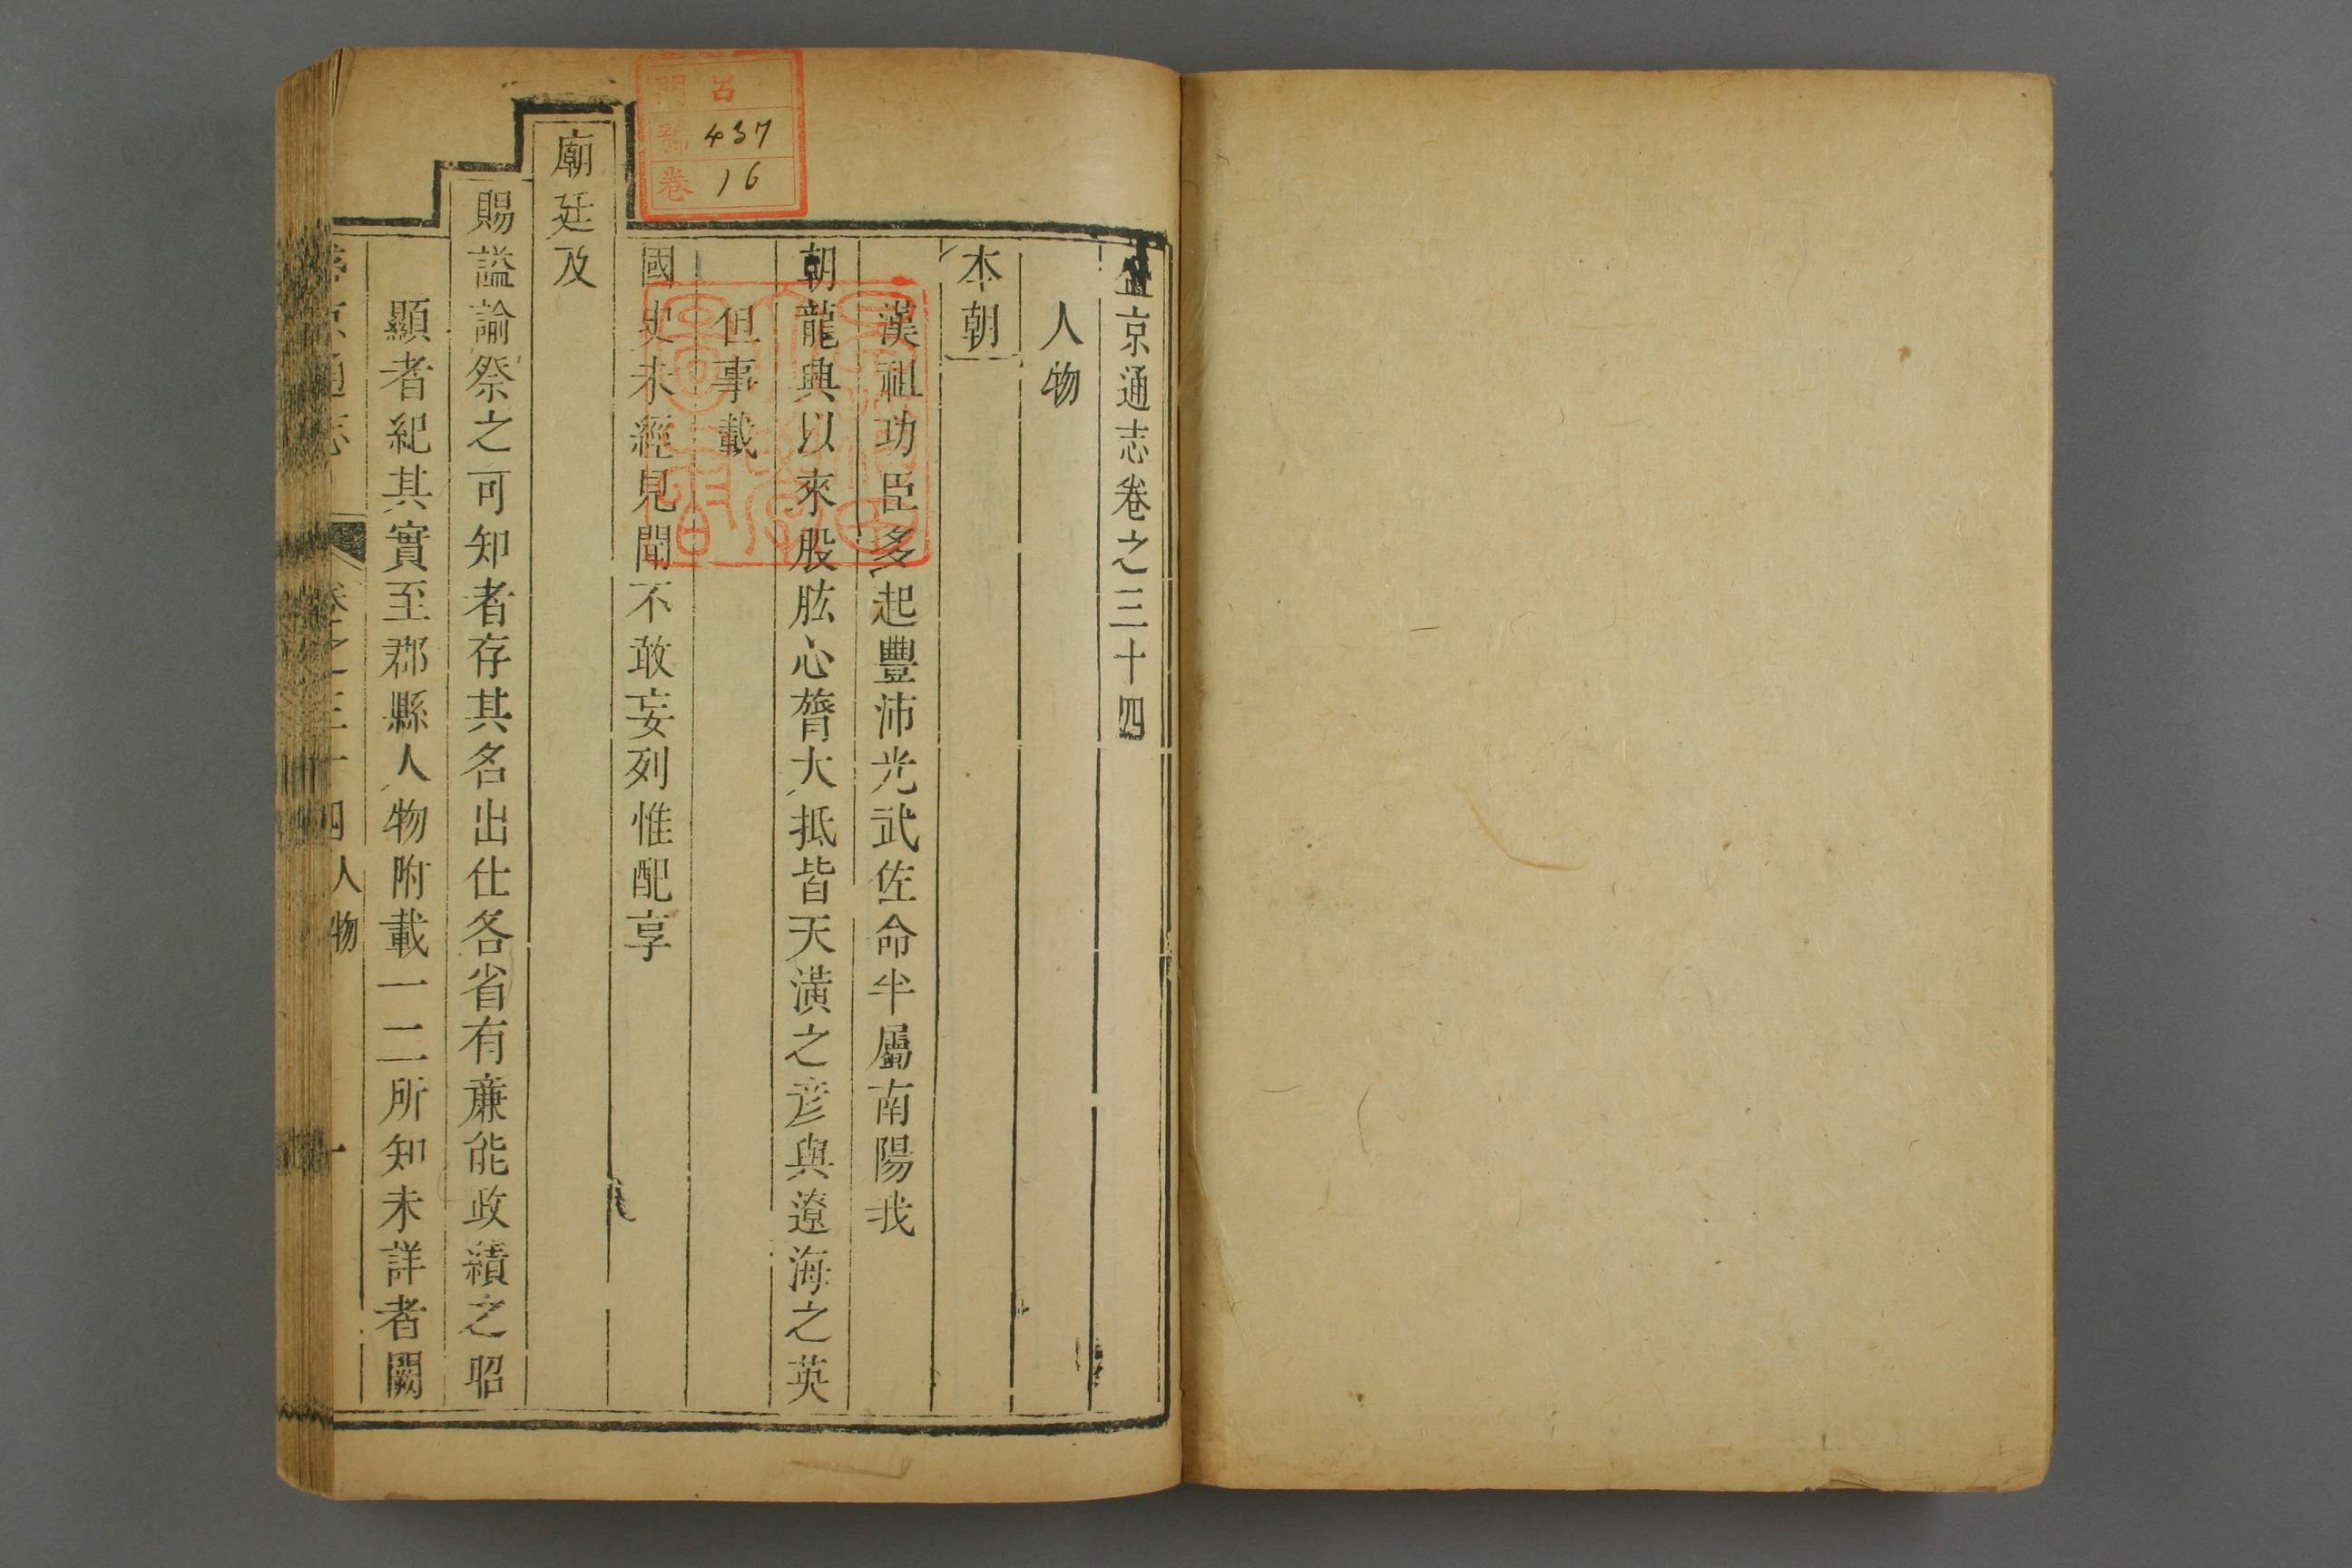 盛京通志卷之三十四
人物
本朝
漢祖功臣多起豐沛光武佐命半屬南陽我
朝龍興以來股肱心膂大抵皆天潢之彥與遼海之英
但事載
國史未經見聞不敢妄列惟配享
廟廷及
賜謚諭祭之可知者存其名出仕各省有廉能政績之昭
顯者紀其實至郡縣人物附載一二所知未詳者闕
盛京通志 卷之三十四 人物 一
門 呂
號 437
卷 16